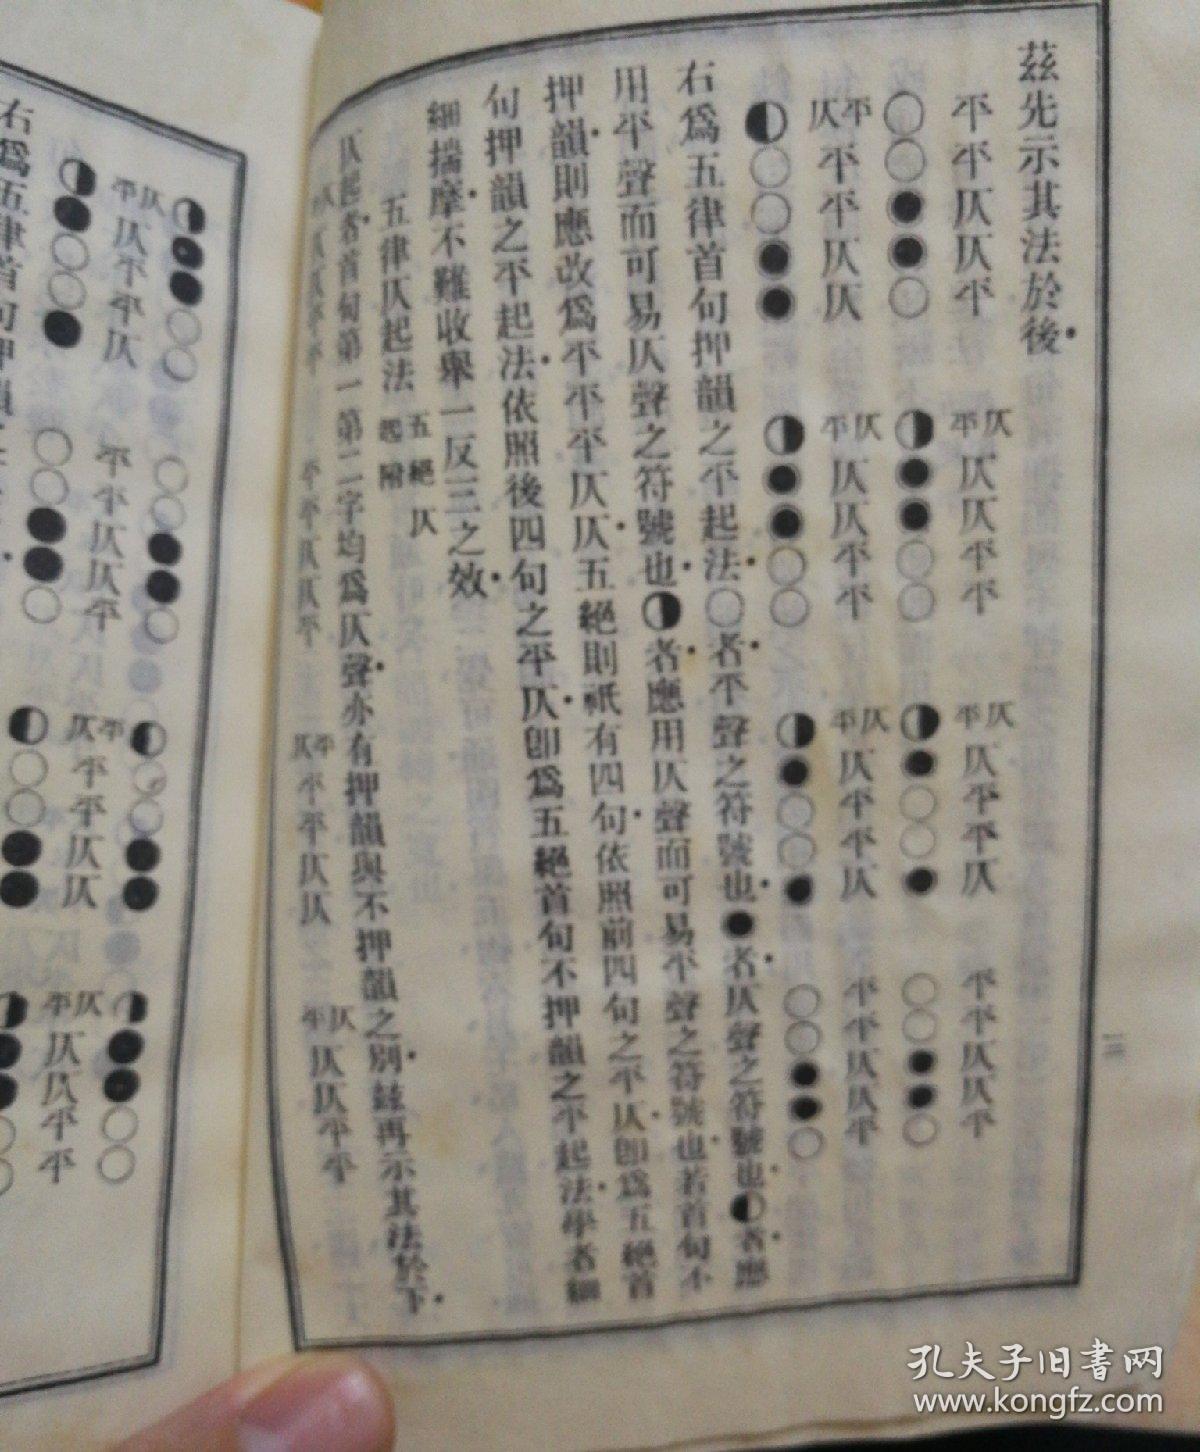 茲先示其法於後
平平仄仄平　仄平仄仄平平　仄平仄平平仄　平平仄仄平
○○●●○　◐●●○○　◐●○○●　○○●●○
平仄平平仄仄　仄平仄仄平平　仄平仄平平仄　平平仄仄平
◐○○●●　◐●●○○　◐●○○●　○○●●○
右爲五律首句押韻之平起法○者平聲之符號也●者仄聲之符號也◐者應
用平聲而可易仄聲之符號也◐者應用仄聲而可易平聲之符號也若首句不
押韻則應改爲平平平仄仄五絕則祇有四句依照前四句之平仄卽爲五絕首
句押韻之平起法依照後四句之平仄卽爲五絕首句不押韻之平起法學者細
細揣摩不難收舉一反三之效
五律仄起法　五絕仄起附
仄起者首句第一第二字均爲仄聲亦有押韻與不押韻之別茲再示其法於下
仄仄仄平平　平平仄仄平　平仄平平仄仄　仄平仄仄平平
◐●●○○　○○●●○　◐○○●●　◐●●○○
仄平仄平平仄　平平仄仄平　平仄平平仄仄　仄平仄仄平平
◐●○○●　○○●●○　◐○○●●　◐●●○○
右爲五律首句押韻
孔夫子旧書网
www.kongfz.com